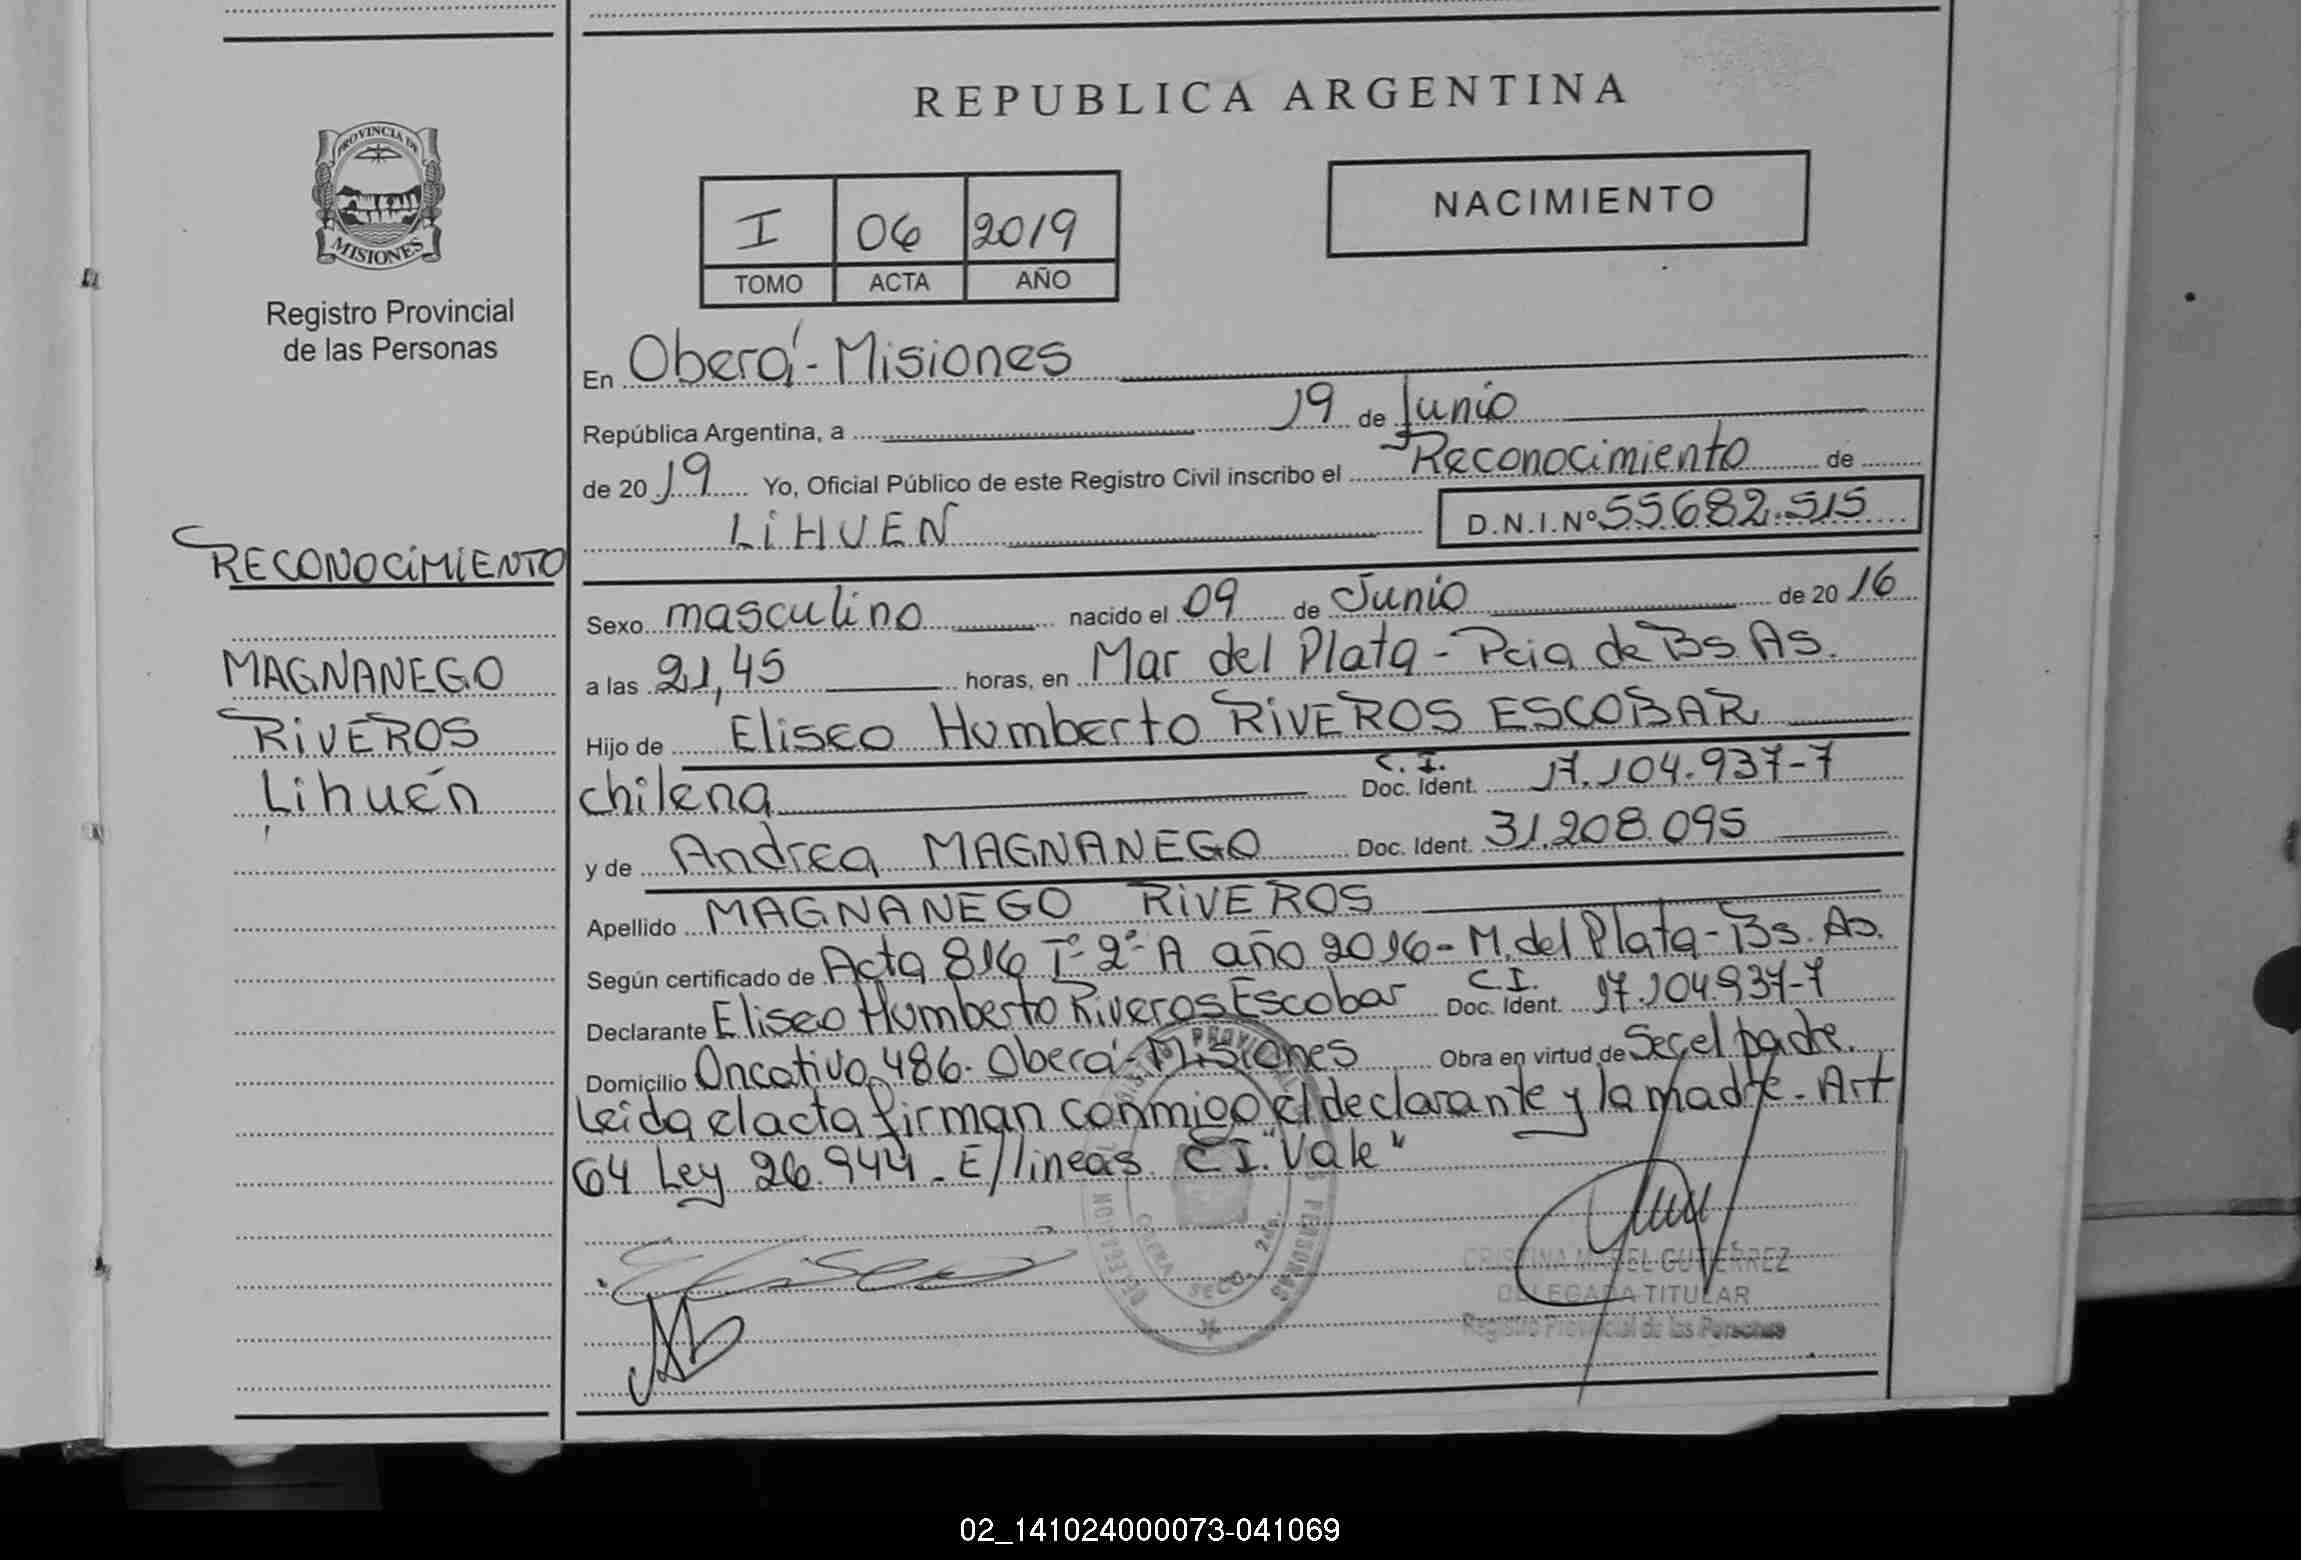 REPUBLICA ARGENTINA
PROVINCIA DE
MISIONES
Registro Provincial
de las Personas
NACIMIENTO
I 06 2019
TOMO ACTA AÑO
En Oberá - Misiones
República Argentina, a 19 de Junio
de 2019 Yo, Oficial Público de este Registro Civil inscribo el Reconocimiento de
LiHUEN D.N.I.Nº 55.682.515
RECONOCiMiENTO
MAGNANEGO
RiVEROS
Lihuén
Sexo masculino nacido el 09 de Junio de 2016
a las 21,45 horas, en Mar del Plata - Pcia de Bs As.
Hijo de Eliseo Humberto RiVEROS ESCOBAR
chilena C.I. Doc. Ident. 17.104.937-7
y de Andrea MAGNANEGO Doc. Ident. 31.208.095
Apellido MAGNANEGO RiVEROS
Según certificado de Acta 816 Tº 2º A año 2016 - M. del Plata - Bs. As.
Declarante Eliseo Humberto Riveros Escobar C.I. Doc. Ident. 17.104.937-7
Domicilio Oncativo 486. Oberá - Misiones Obra en virtud de Ser el padre.
Leida el acta firman conmigo el declarante y la madre. Art
64 Ley 26.944. E/lineas C.I. "Vale"
Eliseo
CRISTINA MABEL GUTIERREZ
DELEGADA TITULAR
Registro Provincial de las Personas
02_141024000073-041069